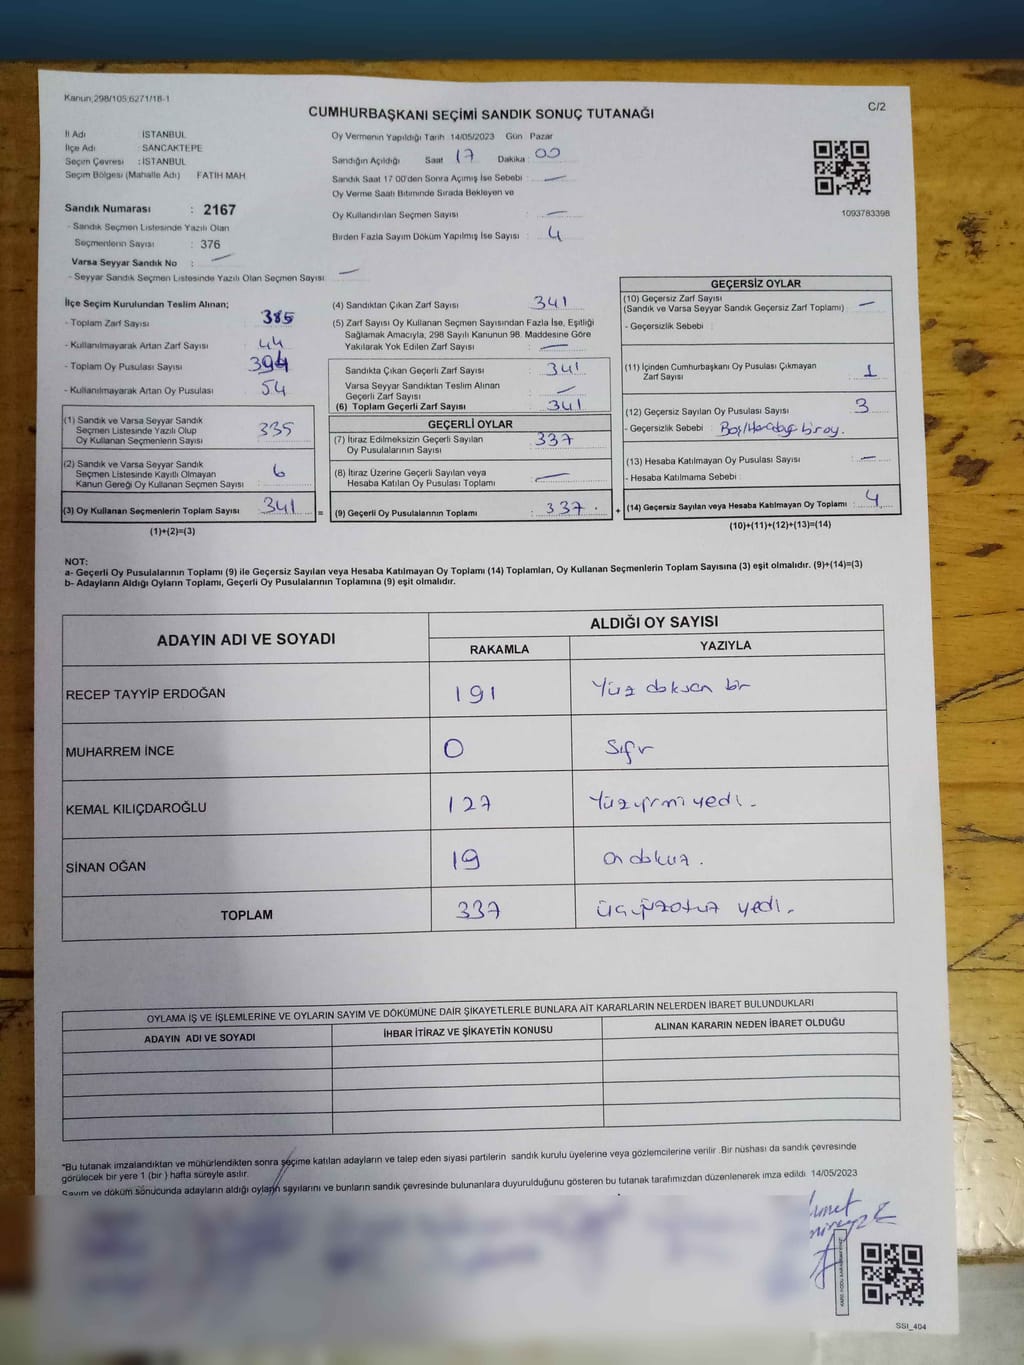 Kanun:298/105,6271/18-1
C/2
CUMHURBAŞKANI SEÇİMİ SANDIK SONUÇ TUTANAĞI
İl Adı İSTANBUL
İlçe Adı : SANCAKTEPE
Seçim Çevresi : İSTANBUL
Seçim Bölgesi (Mahalle Adı) FATİH MAH
Sandık Numarası : 2167
- Sandık Seçmen Listesinde Yazılı Olan
Seçmenlerin Sayısı : 376
Varsa Seyyar Sandık No : —
- Seyyar Sandık Seçmen Listesinde Yazılı Olan Seçmen Sayısı : —
Oy Vermenin Yapıldığı Tarih 14/05/2023 Gün Pazar
Sandığın Açıldığı Saat 17 Dakika : 00
Sandık Saat 17:00'den Sonra Açımış İse Sebebi : —
Oy Verme Saati Bitiminde Sırada Bekleyen ve
Oy Kullandırılan Seçmen Sayısı : —
Birden Fazla Sayım Döküm Yapılmış İse Sayısı : 4
1093783398
İlçe Seçim Kurulundan Teslim Alınan;
- Toplam Zarf Sayısı : 385
- Kullanılmayarak Artan Zarf Sayısı : 44
- Toplam Oy Pusulası Sayısı : 394
- Kullanılmayarak Artan Oy Pusulası : 54
(1) Sandık ve Varsa Seyyar Sandık
Seçmen Listesinde Yazılı Olup
Oy Kullanan Seçmenlerin Sayısı : 335
(2) Sandık ve Varsa Seyyar Sandık
Seçmen Listesinde Kayıtlı Olmayan
Kanun Gereği Oy Kullanan Seçmen Sayısı : 6
(3) Oy Kullanan Seçmenlerin Toplam Sayısı : 341
(1)+(2)=(3)
(4) Sandıktan Çıkan Zarf Sayısı : 341
(5) Zarf Sayısı Oy Kullanan Seçmen Sayısından Fazla İse, Eşitliği
Sağlamak Amacıyla, 298 Sayılı Kanunun 98. Maddesine Göre
Yakılarak Yok Edilen Zarf Sayısı : —
Sandıkta Çıkan Geçerli Zarf Sayısı : 341
Varsa Seyyar Sandıktan Teslim Alınan
Geçerli Zarf Sayısı : —
(6) Toplam Geçerli Zarf Sayısı : 341
GEÇERLİ OYLAR
(7) İtiraz Edilmeksizin Geçerli Sayılan
Oy Pusulalarının Sayısı : 337
(8) İtiraz Üzerine Geçerli Sayılan veya
Hesaba Katılan Oy Pusulası Toplamı : —
= (9) Geçerli Oy Pusulalarının Toplamı : 337
GEÇERSİZ OYLAR
(10) Geçersiz Zarf Sayısı
(Sandık ve Varsa Seyyar Sandık Geçersiz Zarf Toplamı) : —
- Geçersizlik Sebebi :
(11) İçinden Cumhurbaşkanı Oy Pusulası Çıkmayan
Zarf Sayısı : 1
(12) Geçersiz Sayılan Oy Pusulası Sayısı : 3
- Geçersizlik Sebebi :
(13) Hesaba Katılmayan Oy Pusulası Sayısı : —
- Hesaba Katılmama Sebebi :
+ (14) Geçersiz Sayılan veya Hesaba Katılmayan Oy Toplamı : 4
(10)+(11)+(12)+(13)=(14)
NOT:
a- Geçerli Oy Pusulalarının Toplamı (9) ile Geçersiz Sayılan veya Hesaba Katılmayan Oy Toplamı (14) Toplamları, Oy Kullanan Seçmenlerin Toplam Sayısına (3) eşit olmalıdır. (9)+(14)=(3)
b- Adayların Aldığı Oyların Toplamı, Geçerli Oy Pusulalarının Toplamına (9) eşit olmalıdır.
ADAYIN ADI VE SOYADI
ALDIĞI OY SAYISI
RAKAMLA YAZIYLA
RECEP TAYYİP ERDOĞAN 191 Yüz doksan bir
MUHARREM İNCE 0 Sıfır
KEMAL KILIÇDAROĞLU 127 Yüzyirmi yedi.
SİNAN OĞAN 19 On dokuz.
TOPLAM 337 üçyüzotuz yedi.
OYLAMA İŞ VE İŞLEMLERİNE VE OYLARIN SAYIM VE DÖKÜMÜNE DAİR ŞİKAYETLERLE BUNLARA AİT KARARLARIN NELERDEN İBARET BULUNDUKLARI
ADAYIN ADI VE SOYADI İHBAR İTİRAZ VE ŞİKAYETİN KONUSU ALINAN KARARIN NEDEN İBARET OLDUĞU
*Bu tutanak imzalandıktan ve mühürlendikten sonra seçime katılan adayların ve talep eden siyasi partilerin sandık kurulu üyelerine veya gözlemcilerine verilir. Bir nüshası da sandık çevresinde
görülecek bir yere 1 (bir) hafta süreyle asılır.
Sayım ve döküm sonucunda adayların aldığı oyların sayılarını ve bunların sandık çevresinde bulunanlara duyurulduğunu gösteren bu tutanak tarafımızdan düzenlenerek imza edildi. 14/05/2023
SSI_404